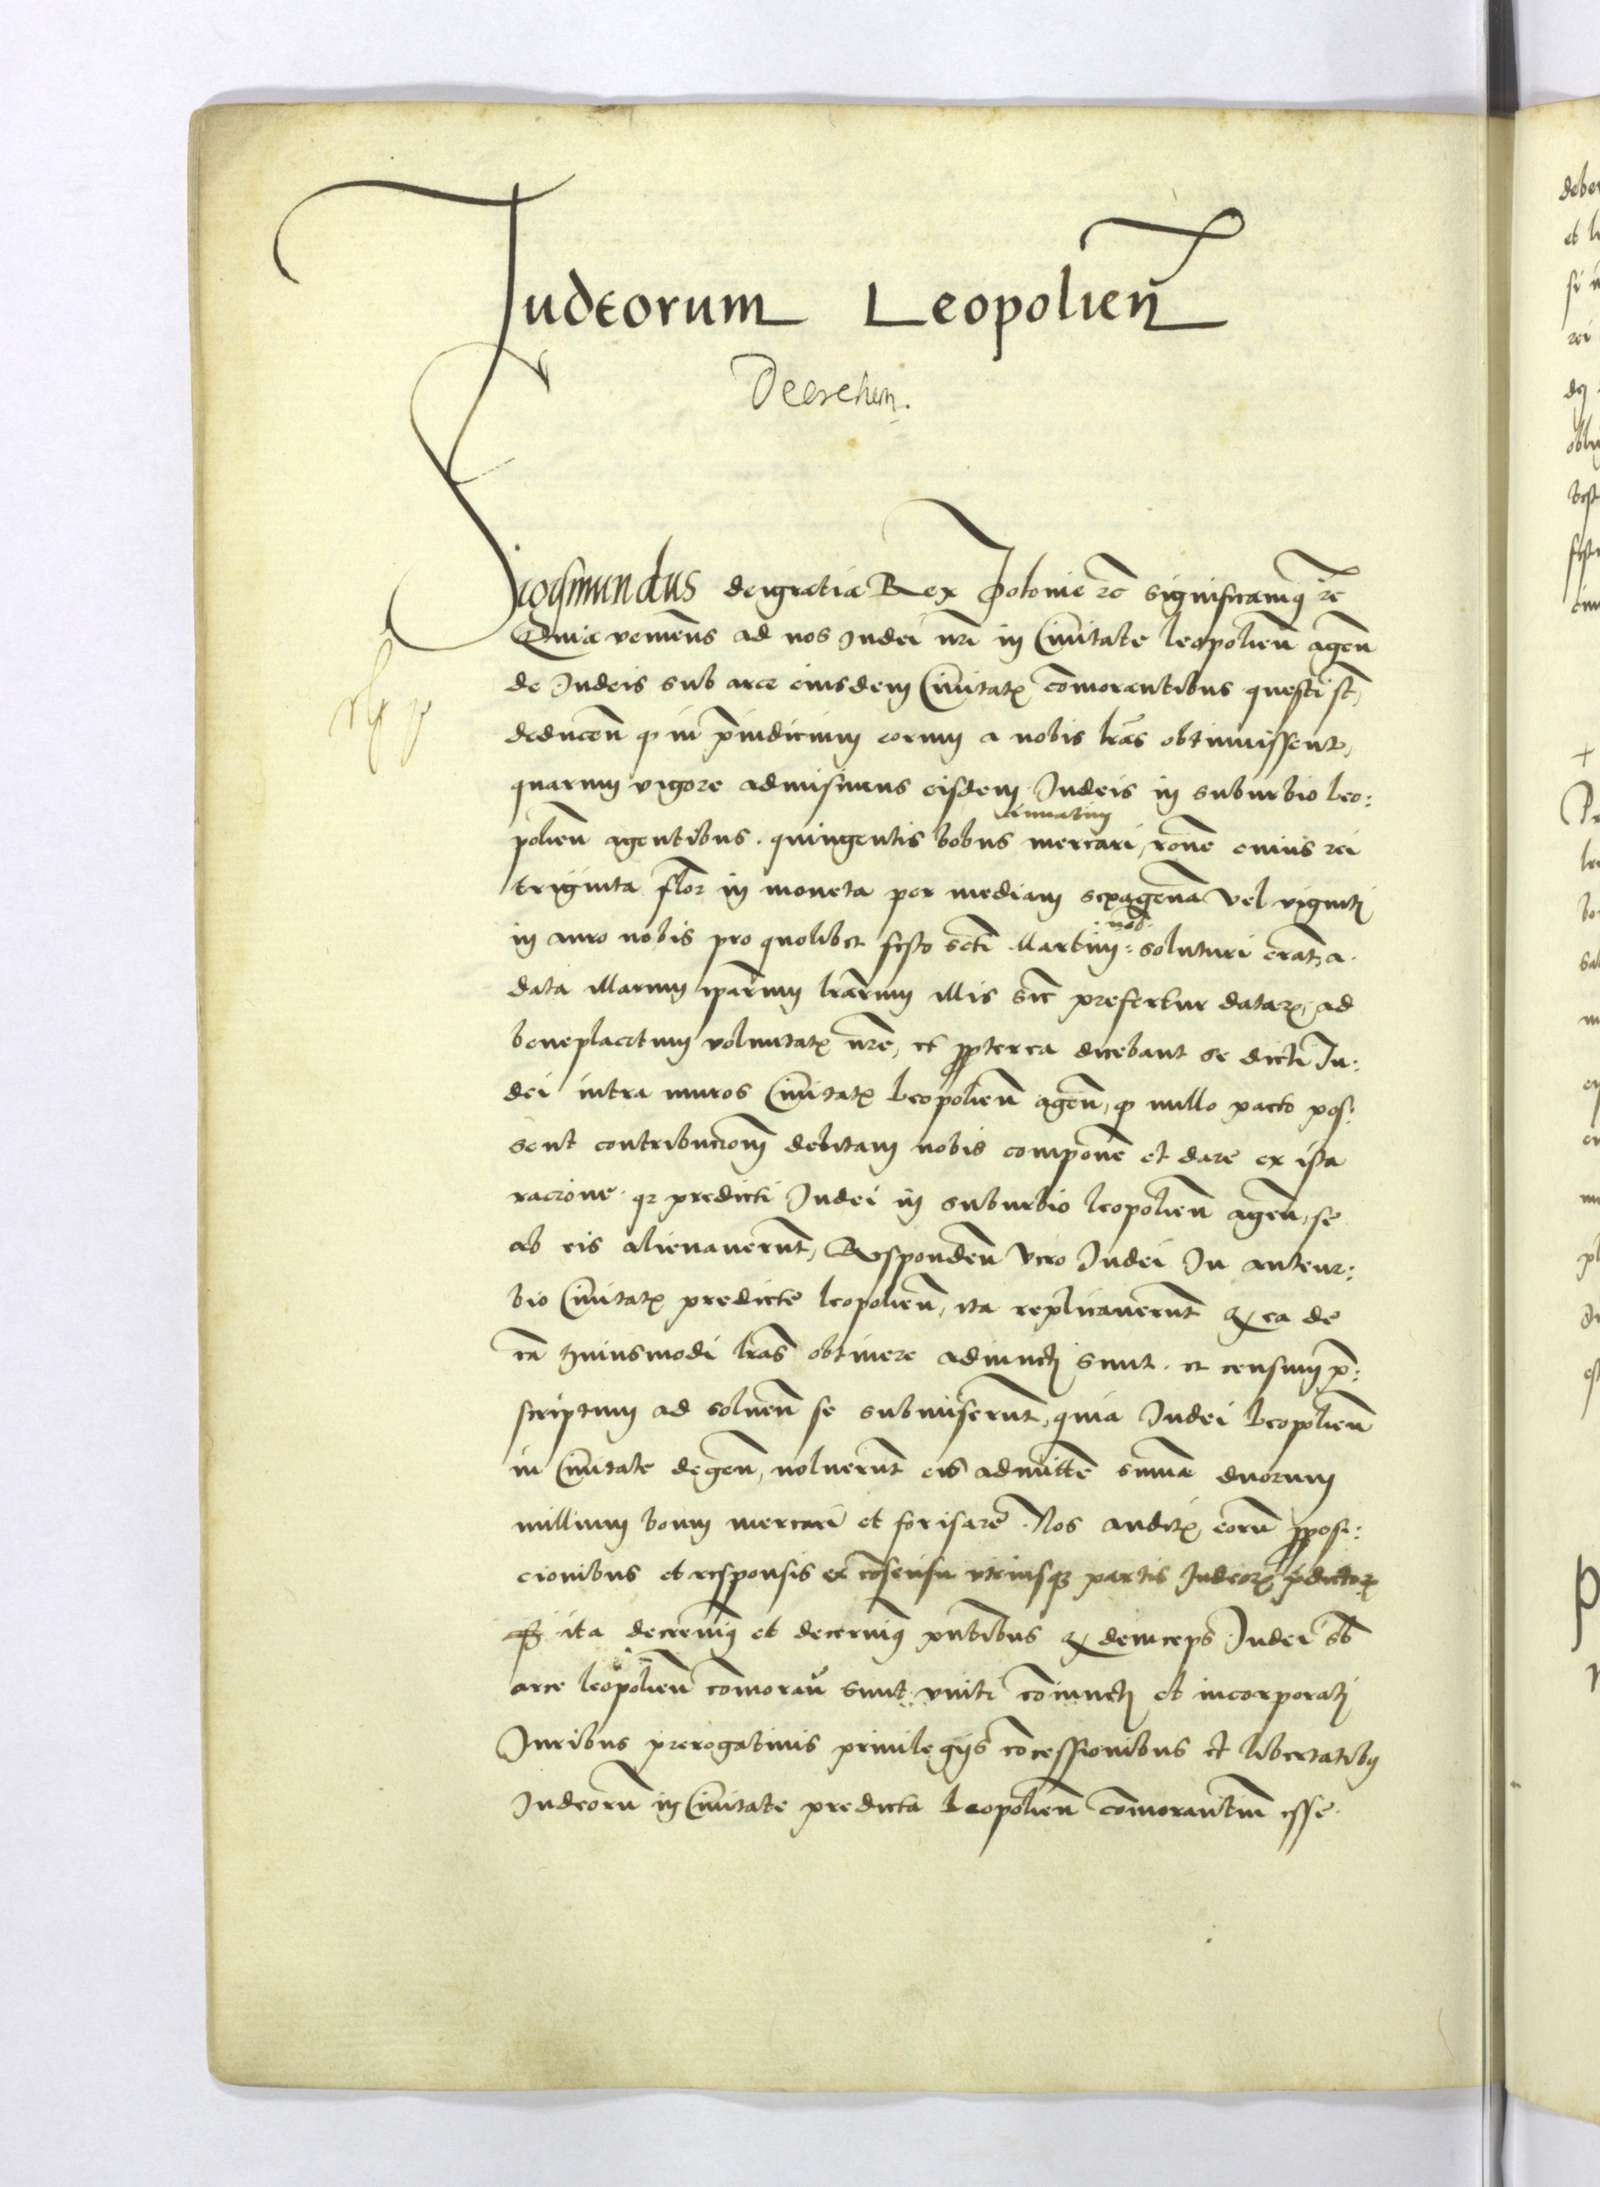 Judeorum Leopolien̄
Decretum.
Sigismundus dei gratia Rex Polonie ꝛc̄ Significamꝰ ꝛc̄
Quia venien̄s ad nos Judei nr̄i in Ciuitate leopolien̄ agen̄
de Judeis sub arce eiusdem Ciuitatꝭ com̄orantibus questi st̄,
deducen̄ ꝙ in p̄iudicium eorum a nobis lr̄as obtinuissent,
quarum vigore admisimus eisdem Judeis in suburbio leo:
annuatim
polien̄ agentibus. quingentis bobus mercari, rōne cuius rei
triginta flor̄ in moneta per mediam sexagena vel viginti
nob:
in auro nobis pro quolibet festo scti Martini: soluturi erāt, a
data illarum ipārum lr̄arum illis sic prefertur datarꝝ, ad
beneplacitum voluntatꝭ nr̄e, et ꝓpterea dicebant se dicti Ju:
dei intra muros Ciuitatꝭ Leopolien̄ agen̄, ꝙ nullo pacto pos:
sent contribucionem̄ debitam nobis compon̄e et dare ex ista
racione. qꝛ predicti Judei in suburbio leopolien̄ agen̄, se
ab eis alienauerunt, Responden̄ vero Judei In anteur:
bio Ciuitatꝭ predicte leopolien̄, ita replicauerunt ꝙ ea de
cā huiusmodi lr̄as obtinere adiuncti sunt. et censum p̄:
scriptum ad soluen̄ se submiserunt, quia Judei Leopolien̄
in Ciuitate degen̄, noluerunt eis admitte summā duorum
millium boum mercari et forisare. Nos auditꝭ eorū ꝓposi:
cionibus et responsis ex cōsensu vtriusqꝫ partis Judeorꝝ p̄dictorꝝ
ita decreuimꝰ et decernimꝰ pn̄tibus ꝙ deinceps Judei sb̄
arce leopolien̄ com̄oran̄ sunt vniti coniuncti et incorporati
Juribus prerogatiuis priuilegijs cōcessionibus et libertatibꝰ
Judeorū in Ciuitate predicta Leopolien̄ com̄orantiū esse.